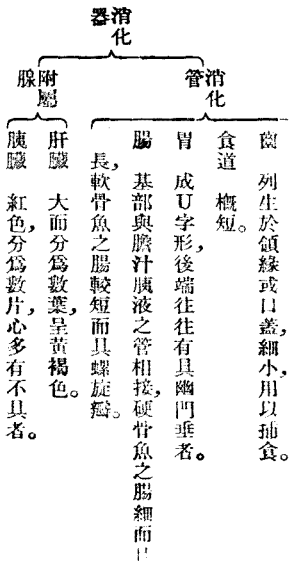 消化器
消化管
齒　列生於頜緣或口蓋，細小，用以捕食。
食道　概短。
胃　成U字形，後端往往有具幽門垂者。
腸　基部與膽汁胰液之管相接，硬骨魚之腸細而且
長，軟骨魚之腸較短而具螺旋瓣。
附屬腺
肝臟　大而分爲數葉，呈黃褐色。
胰臟　紅色，分爲數片，心多有不具者。